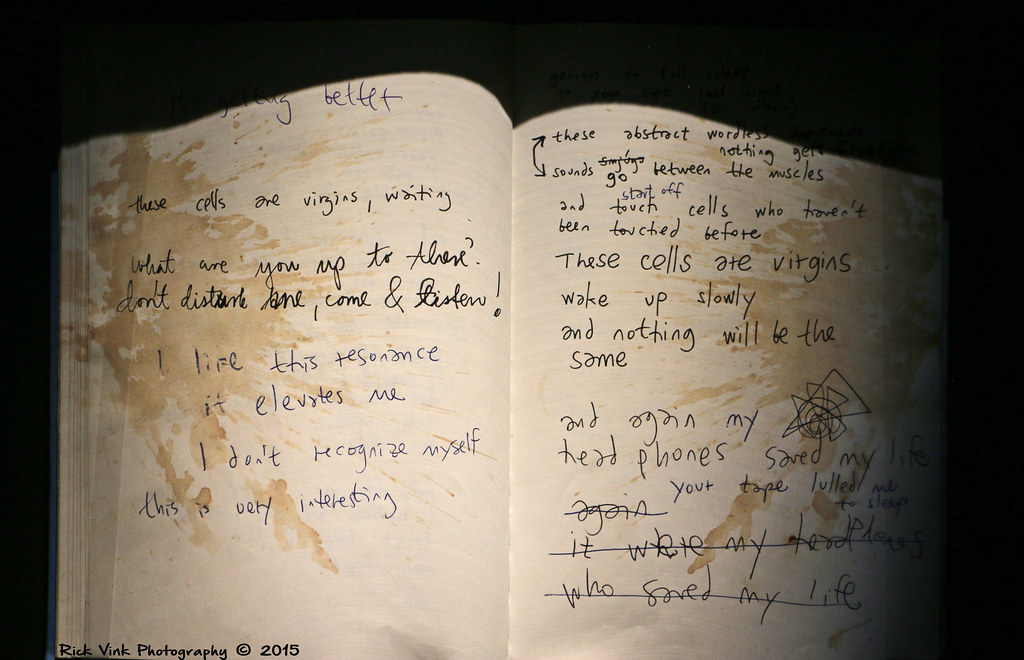 it's getting better
these cells are virgins, waiting
what are you up to there?
don't disturb me, come & listen!
I like this resonance
it elevates me
I don't recognize myself
this is very interesting
genious to fall asleep
to your tape last night
these abstract wordless
nothing gets
sounds go between the muscles
start off
and touch cells who haven't
been touched before
These cells are virgins
wake up slowly
and nothing will be the
same
and again my
head phones saved my life
your tape lulled me
to sleep
again
it were my headphones
who saved my life
Rick Vink Photography © 2015